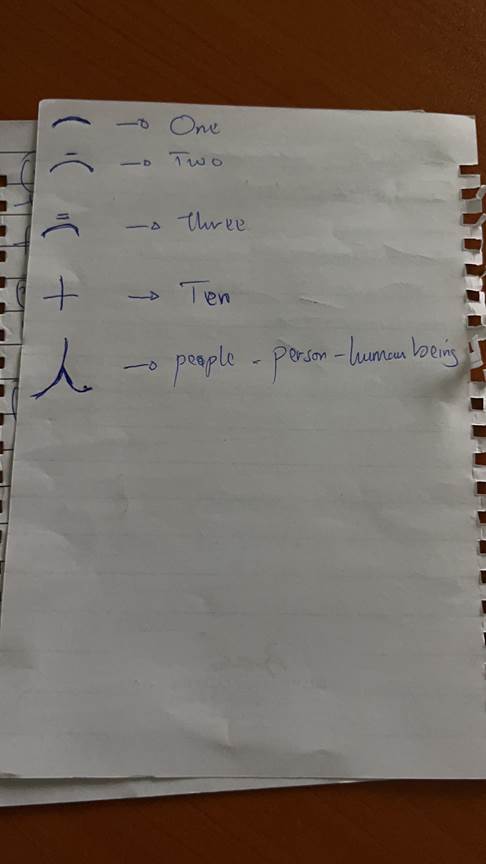 一 → One
二 → Two
三 → three
十 → Ten
人 → people - person - human being